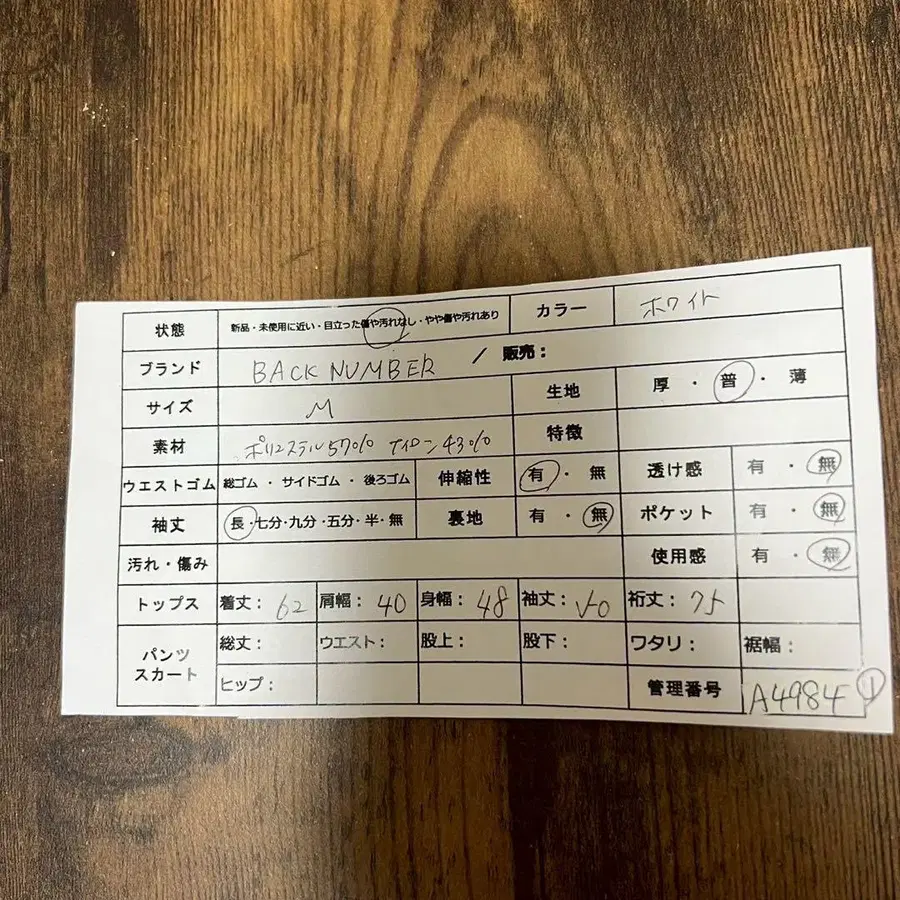 状態 新品・未使用に近い・目立った傷や汚れなし・やや傷や汚れあり カラー ホワイト
ブランド BACK NUMBER / 販売：
サイズ M 生地 厚・普・薄
素材 ポリエステル57% ナイロン43% 特徴
ウエストゴム 総ゴム・サイドゴム・後ろゴム 伸縮性 有・無 透け感 有・無
袖丈 長・七分・九分・五分・半・無 裏地 有・無 ポケット 有・無
汚れ・傷み 使用感 有・無
トップス 着丈：62 肩幅：40 身幅：48 袖丈：50 裄丈：75
パンツ スカート 総丈： ウエスト： 股上： 股下： ワタリ： 裾幅：
ヒップ： 管理番号 A4984 1